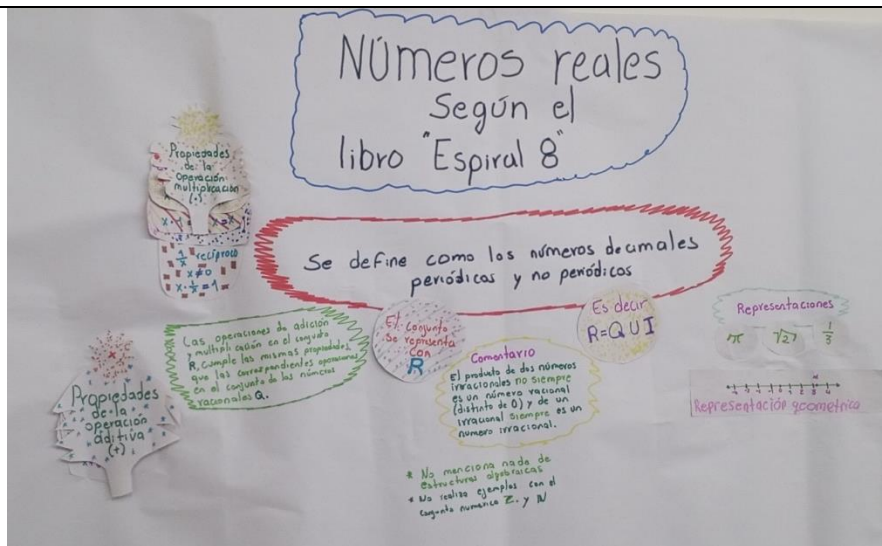 Números reales
Según el
libro "Espiral 8"
Propiedades
de la
operación
multiplicación
(·)
x·1
x=x
1/x recíproco
x≠0
x·1/x=1
Se define como los números decimales
periódicos y no periódicos
Las operaciones de adición
y multiplicación en el conjunto
R, cumple las mismas propiedades,
que las correspondientes operaciones
en el conjunto de los números
racionales Q.
El conjunto
se representa
con
R
Es decir
R=Q U I
Representaciones
π √2 1/3
Representación geometrica
Comentario
El produto de dos números
irracionales no siempre
es un número racional
(distinto de 0) y de un
irracional siempre es un
numero irracional.
Propiedades
de la
operación
aditiva
(+)
* No menciona nada de
estructuras algebraicas
* No realiza ejemplos con el
conjunto numerico Z. y N